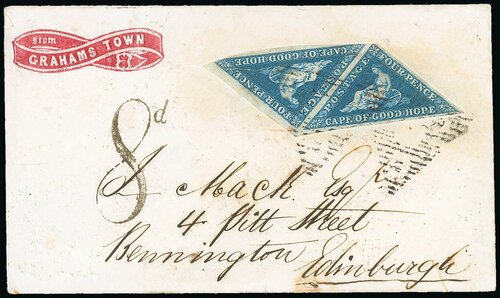 from
GRAHAMS TOWN
FOUR PENCE
POSTAGE
CAPE OF GOOD HOPE
POSTAGE
FOUR PENCE
CAPE OF GOOD HOPE
8d
J. Mack Esqr
4 Pitt Street
Bennington
Edinburgh